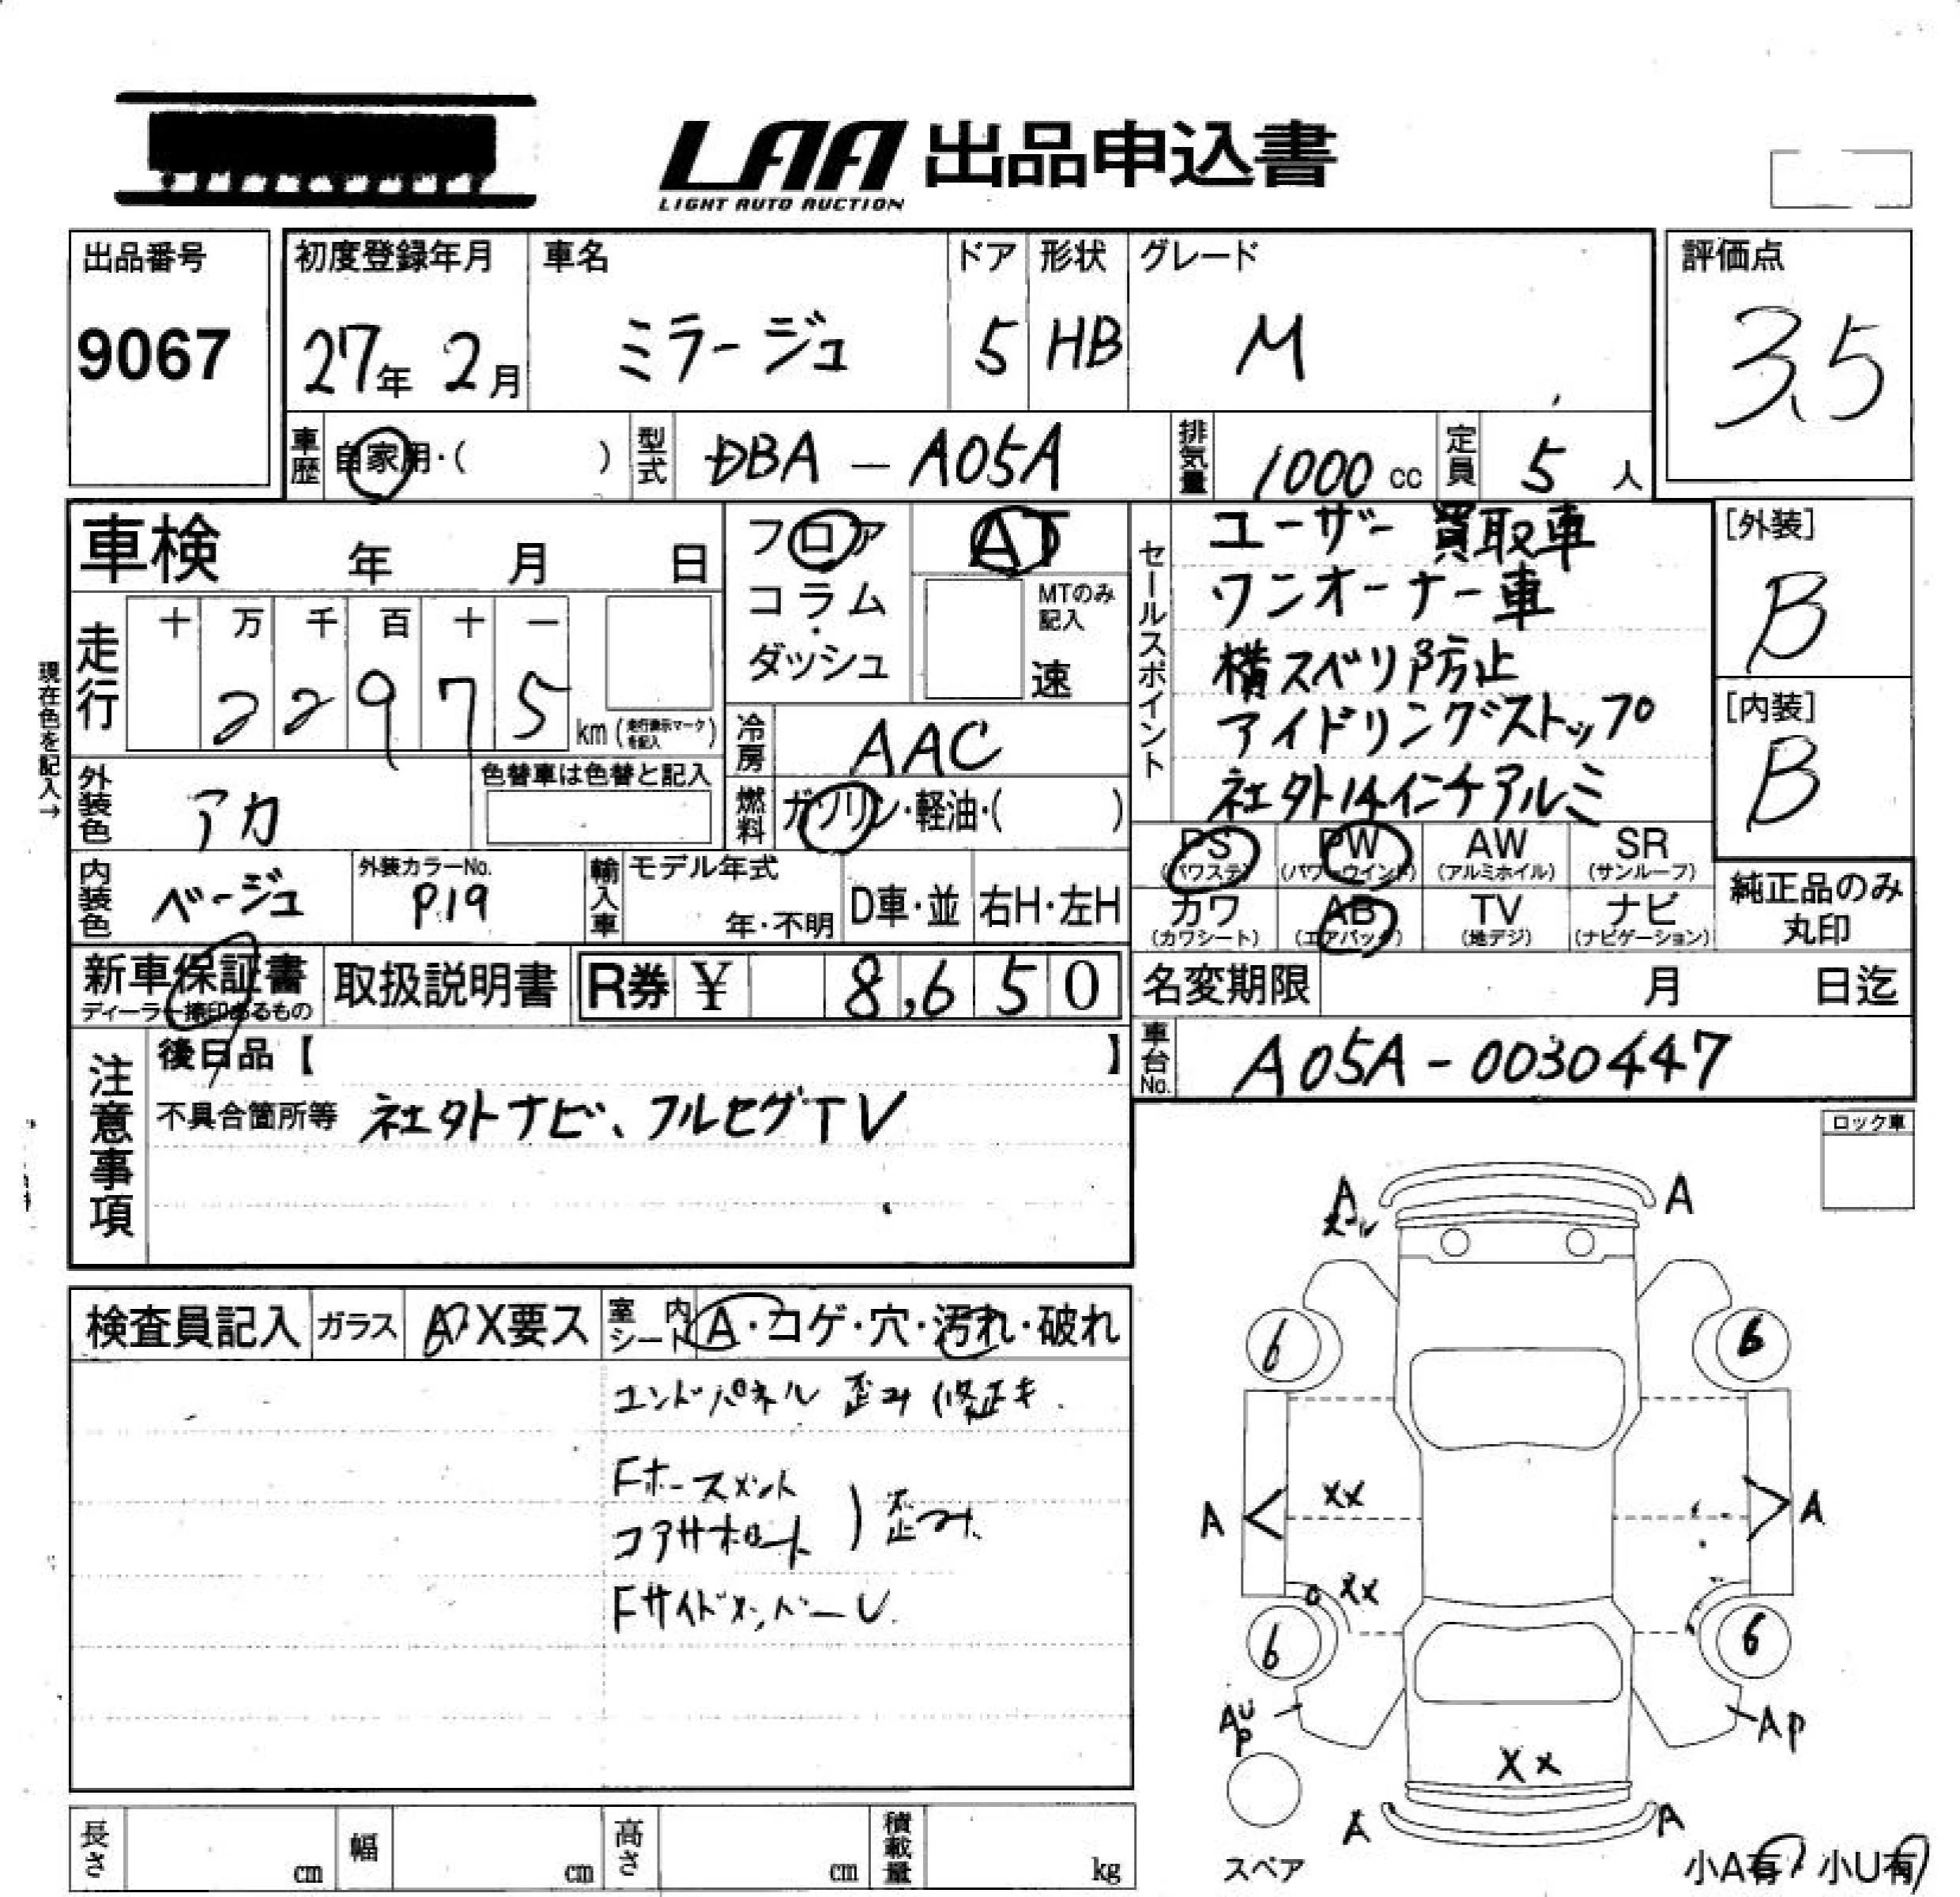 LAA 出品申込書
LIGHT AUTO AUCTION
出品番号
9067
初度登録年月
27年 2月
車名
ミラージュ
ドア
5
形状
HB
グレード
M
評価点
3.5
車歴 自家用・( )
型式 DBA - A05A
排気量 1000 cc
定員 5 人
車検 年 月 日
フロア
コラム
・
ダッシュ
AT
MTのみ
記入
速
セールスポイント
ユーザー買取車
ワンオーナー車
横スベリ防止
アイドリングストップ
社外14インチアルミ
[外装]
B
[内装]
B
現在色を記入→
走行
十 万 千 百 十 一
2 2 9 7 5
km (走行表示マークを記入)
冷房 AAC
燃料 ガソリン・軽油・( )
外装色 アカ
色替車は色替と記入
内装色 ベージュ
外装カラーNo.
P19
輸入車
モデル年式
年・不明
D車・並
右H・左H
PS
(パワステ)
PW
(パワーウインド)
AW
(アルミホイル)
SR
(サンルーフ)
カワ
(カワシート)
AB
(エアバック)
TV
(地デジ)
ナビ
(ナビゲーション)
純正品のみ
丸印
新車保証書
ディーラー捺印あるもの
取扱説明書
R券 ¥ 8,650
名変期限 月 日迄
車台No. A05A-0030447
注意事項
後日品【 】
不具合箇所等 社外ナビ、フルセグTV
ロック車
検査員記入
ガラス A・X要ス
室内シート A・コゲ・穴・汚れ・破れ
エンドパネル 歪み修正キ.
Fホースメント
コアサポート ) 歪み.
Fサイドメンバー U.
A A
6 6
A XX A
XX
6 6
AU
P
AP
XX
A A
スペア
小A有・小U有
長さ cm
幅 cm
高さ cm
積載量 kg